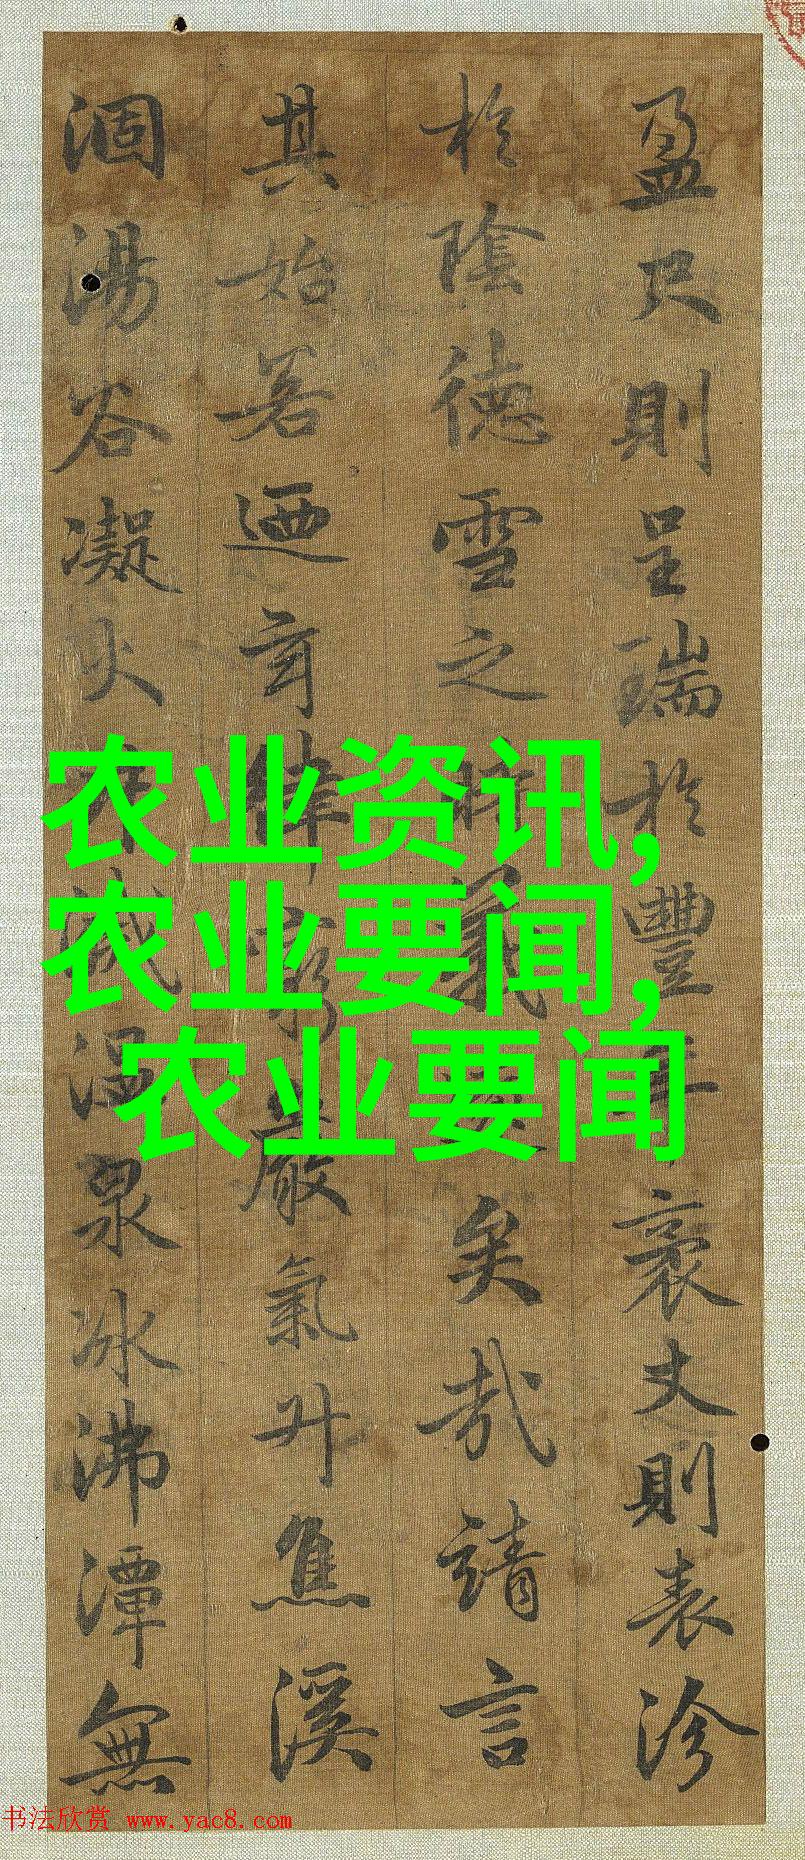 盈尺則呈瑞於豐年袤丈則表沴
於陰德雪之時義遠矣哉請言
其始若迺玄律窮嚴氣升焦溪
涸湯谷凝火井滅溫泉冰沸潭無
农业资讯,
农业要闻,
农业要闻
书法欣赏 www.yac8.com